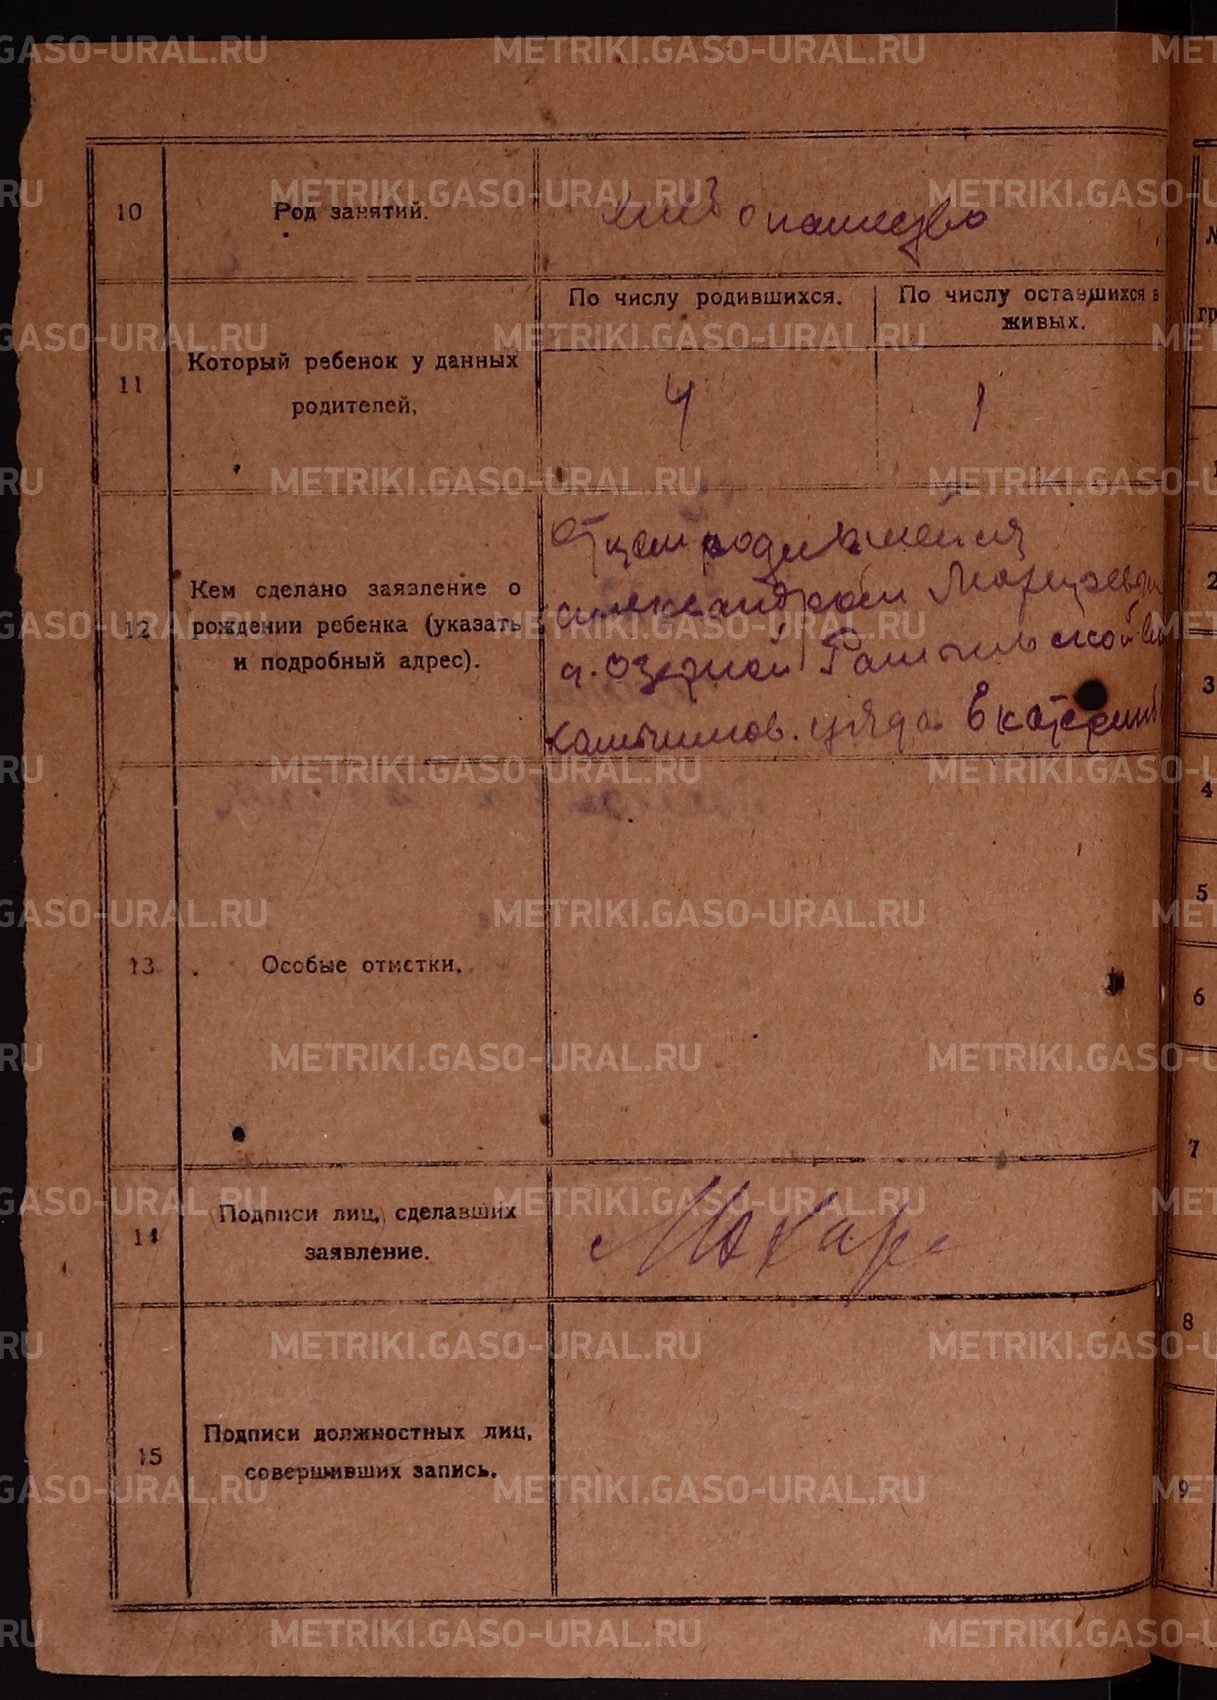 10
Род занятий.
хлебопашество
11
Который ребенок у данных
родителей,
По числу родившихся.
По числу оставшихся в
живых.
4
1
12
Кем сделано заявление о
рождении ребенка (указать
и подробный адрес).
Отцем
Александром
д. Озерной
уезда Екатеринб
13
Особые отметки.
14
Подписи лиц, сделавших
заявление.
15
Подписи должностных лиц,
совершивших запись.
2
3
4
5
6
7
8
9
METRIKI.GASO-URAL.RU